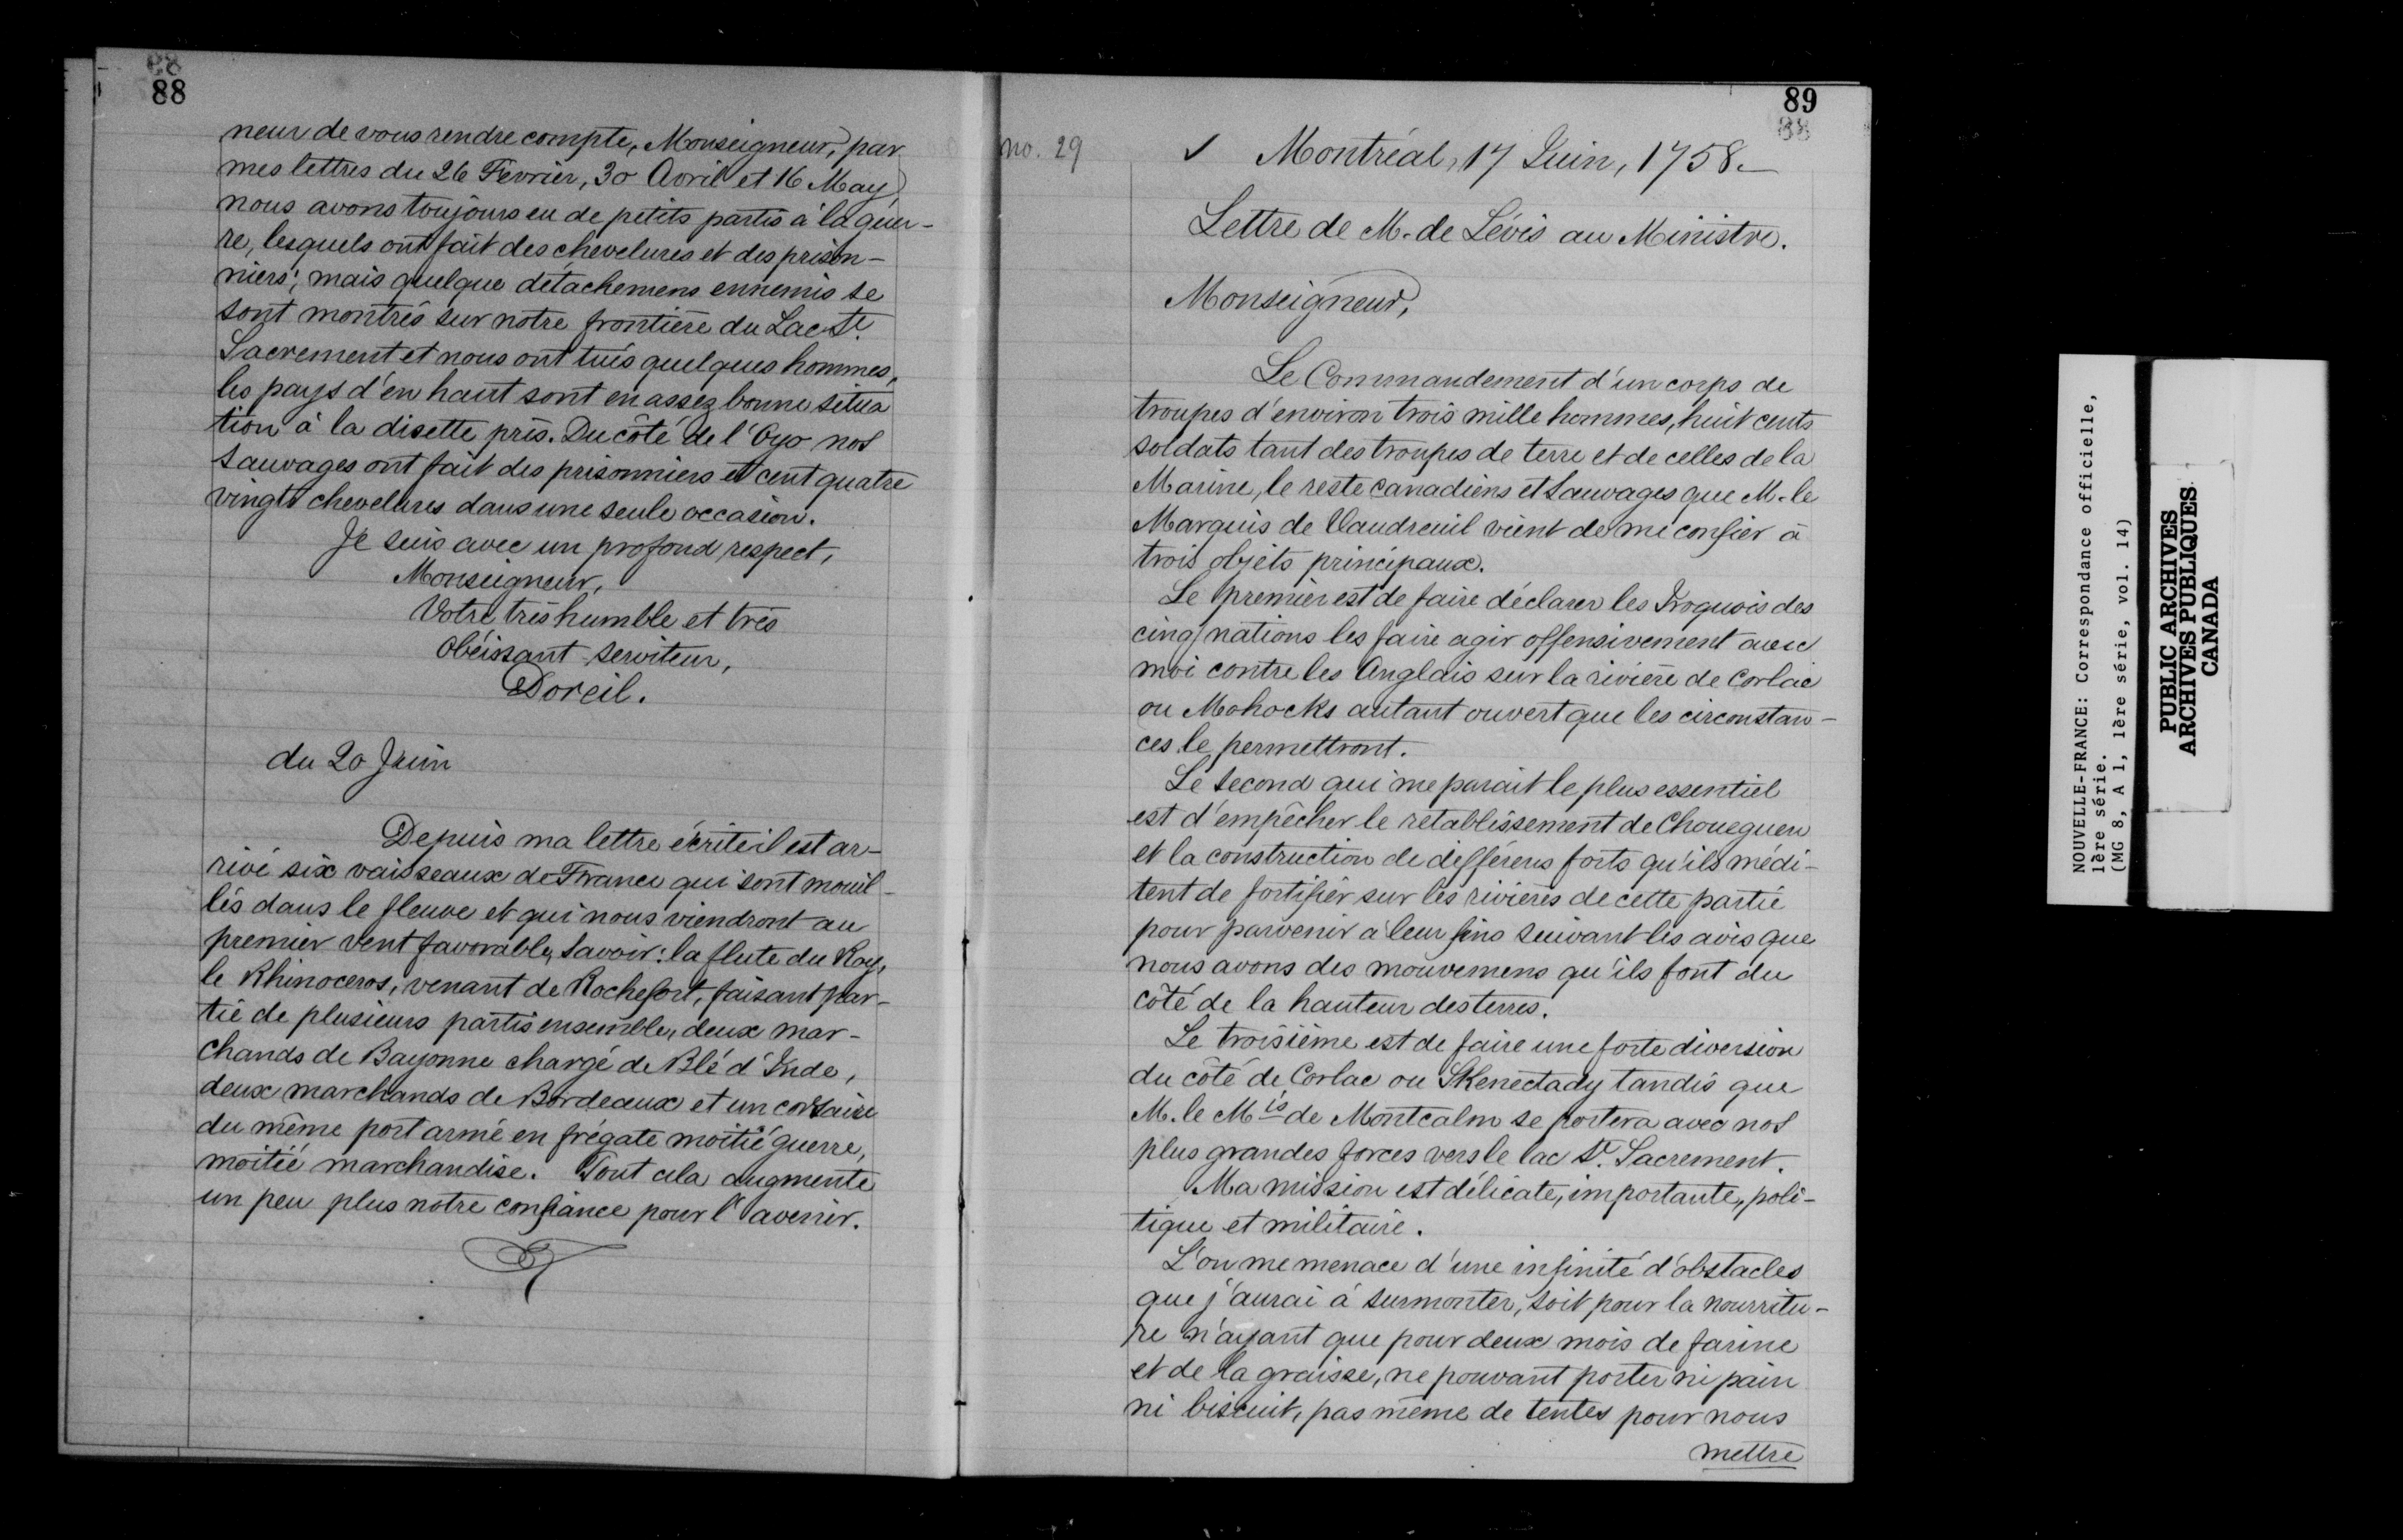 88
neur de vous rendre compte, Monseigneur, par
mes lettres du 26 Février, 30 Avril et 16 May
nous avons toujours eu de petits partis à la guer-
re, lesquels ont fait des chevelures et des prison-
niers; mais quelque détachemens ennemis se
sont montrés sur notre frontière du Lac St.
Sacrement et nous ont tués quelques hommes,
les pays d'en haut sont en assez bonne situa
tion à la disette près. Du côté de l'Oyo nos
sauvages ont fait des prisonniers et cent quatre
vingts chevelures dans une seule occasion.
Je suis avec un profond respect,
Monseigneur,
Votre très humble et très
obéissant serviteur,
Doreil.
du 20 Juin
Depuis ma lettre écrite il est ar-
rivé six vaisseaux de France qui sont mouil-
lés dans le fleuve et qui nous viendront au
premier vent favorable, Savoir: la flute du Roy,
le Rhinoceros, venant de Rochefort, faisant par-
tie de plusieurs partis ensemble, deux mar-
chands de Bayonne chargé de Blé d'Inde,
deux marchands de Bordeaux et un corsaire
du même port armé en frégate moitié guerre,
moitié marchandise. Tout cela augmente
un peu plus notre confiance pour l'avenir.
89
no. 29
✓ Montréal, 17 Juin, 1758.—
Lettre de M. de Lévis au Ministre.
Monseigneur,
Le Commandement d'un corps de
troupes d'environ trois mille hommes, huit cents
soldats tant des troupes de terre et de celles de la
Marine, le reste canadiens et Sauvages que M. le
Marquis de Vaudreuil vient de me confier à
trois objets principaux.
Le premier est de faire déclarer les Iroquois des
cinq nations les faire agir offensivement avec
moi contre les Anglais sur la rivière de Corlac
ou Mohocks autant ouvert que les circonstan-
ces le permettront.
Le second qui me parait le plus essentiel
est d'empêcher le retablissement de Choueguen
et la construction de différens forts qu'ils médi-
tent de fortifier sur les rivières de cette partie
pour parvenir à leur fins suivant les avis que
nous avons des mouvemens qu'ils font du
côté de la hauteur des terres.
Le troisième est de faire une forte diversion
du côté de Corlac ou Skenectady tandis que
M. le Mis de Montcalm se portera avec nos
plus grandes forces vers le lac St. Sacrement.
Ma mission est délicate, importante, poli-
tique et militaire.
L'on me menace d'une infinité d'obstacles
que j'aurai à surmonter, soit pour la nourritu-
re n'ayant que pour deux mois de farine
et de la graisse, ne pouvant porter ni pain
ni biscuit, pas même de tentes pour nous
mettre
NOUVELLE-FRANCE: Correspondance officielle,
1ère série.
(MG 8, A 1, 1ère série, vol. 14)
PUBLIC ARCHIVES
ARCHIVES PUBLIQUES
CANADA